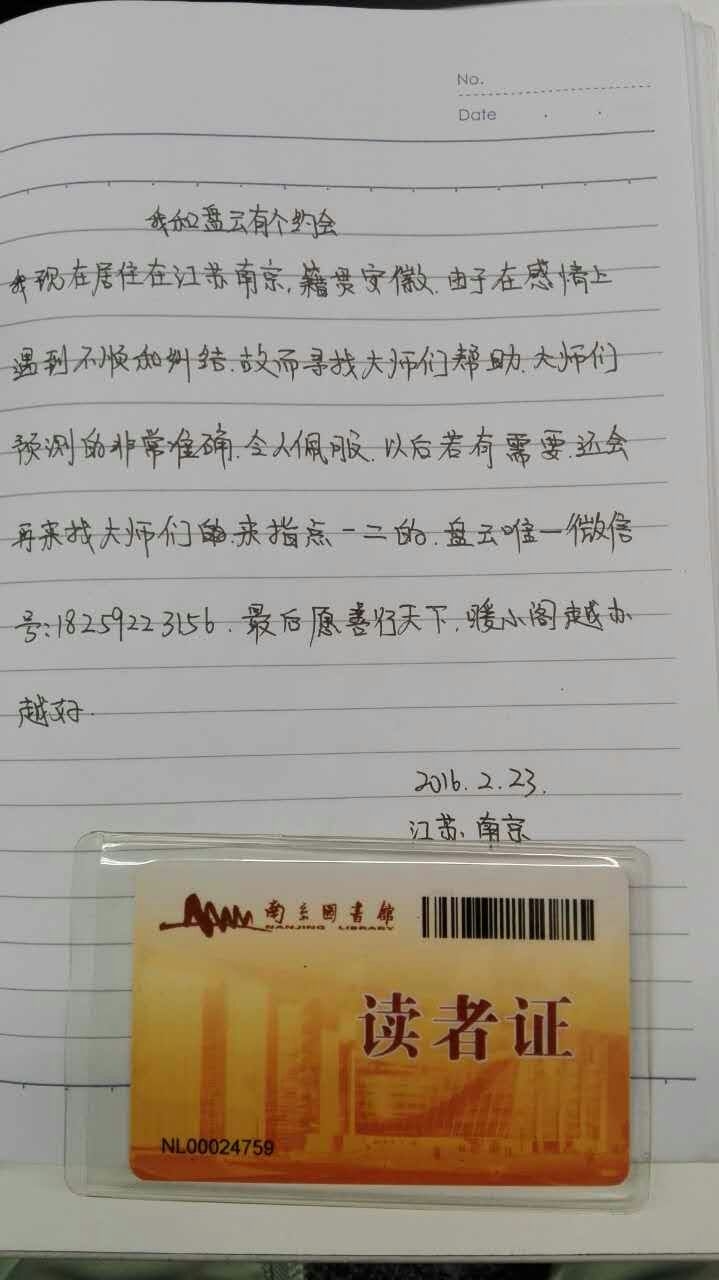 No.
Date
我和盘云有个约会
我现在居住在江苏南京,籍贯安徽.由于在感情上
遇到不顺和纠结.故而寻找大师们帮助.大师们
预测的非常准确.令人佩服.以后若有需要.还会
再来找大师们来指点一二的.盘云唯一微信
号:18259223156.最后愿善行天下,暖小阁越办
越好.
2016.2.23.
江苏、南京
南京图書館
NANJING LIBRARY
读者证
NL00024759